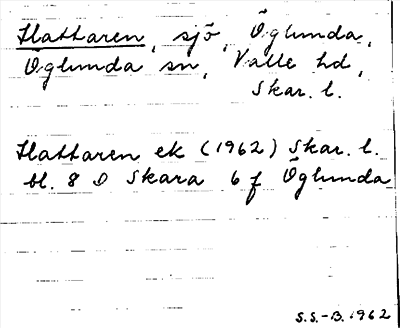 Hattaren, sjö, Öglunda,
Öglunda sn, Valle hd,
Skar. l.
Hattaren ek (1962) Skar. l.
bl. 8 D Skara 6 f Öglunda
S.S.-B. 1962